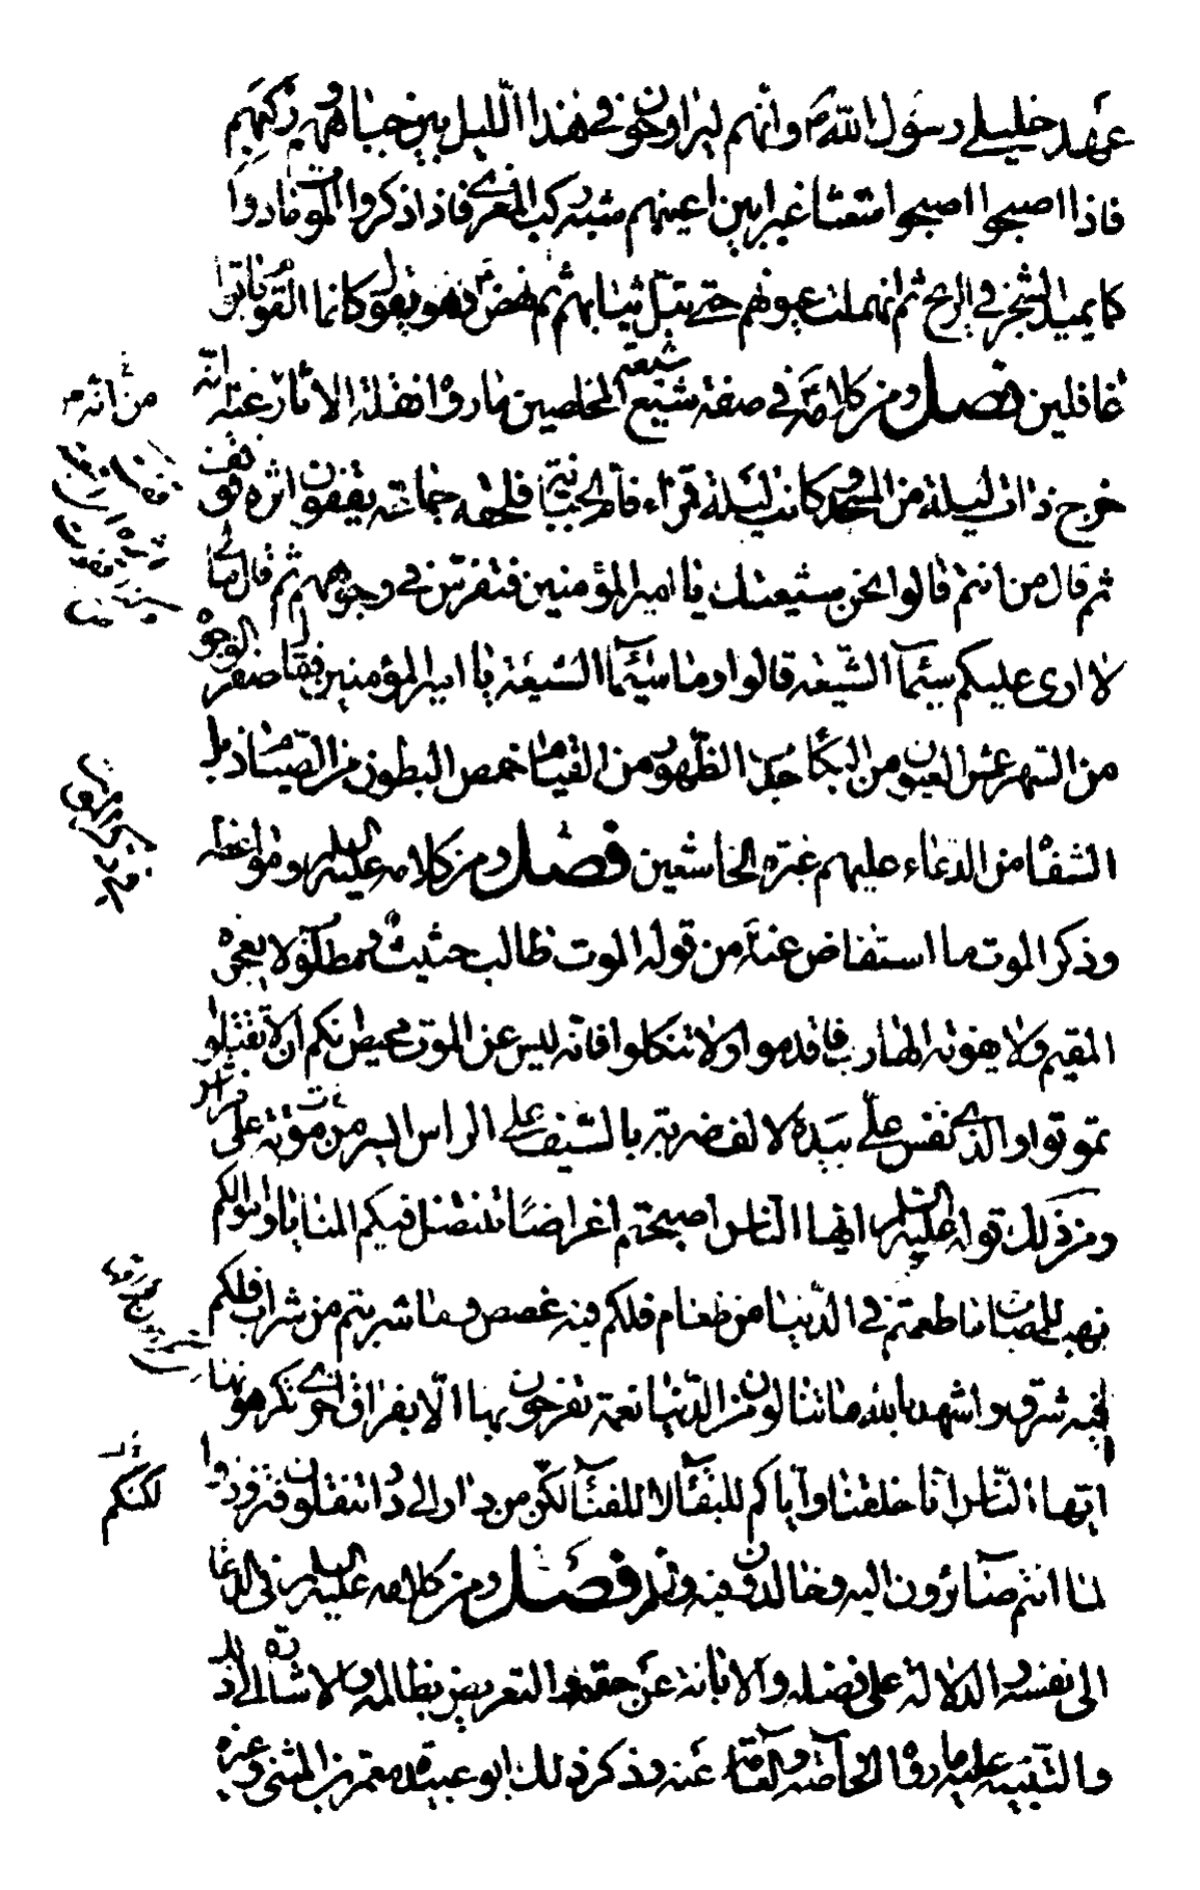 عهد خليلي رسول الله ص وانهم ليراوحون في هذا الليل بين جباههم وركبهم
فاذا اصبحوا اصبحوا شعثا غبرا بين اعينهم شبه ركب المعزى فاذا ذكروا الموت مادوا
كما يميد الشجر في الريح ثم انهملت عيونهم حتى تبل ثيابهم ثم نهض ع وهو يقول كانما القوم باتوا
غافلين فصل ومن كلامه ع في صفة شيعته المخلصين ما رواه نقلة الاثار عنه انه
خرج ذات ليلة من المسجد وكانت ليلة قمراء فام الجبانة فلحقه جماعة يقفون اثره فوقف
ثم قال من انتم قالوا نحن شيعتك يا امير المؤمنين فتفرس في وجوههم ثم قال مالي
لا ارى عليكم سيماء الشيعة قالوا وما سيماء الشيعة يا امير المؤمنين فقال صفر الوجوه
من السهر عمش العيون من البكاء حدب الظهور من القيام خمص البطون من الصيام ذبل
الشفاه من الدعاء عليهم غبرة الخاشعين فصل ومن كلامه عليه السلام ومواعظه
وذكر الموت ما استفاض عنه ع من قوله الموت طالب حثيث ومطلوب لا يعجزه
المقيم ولا يفوته الهارب فاقدموا ولا تنكلوا فانه ليس عن الموت محيص انكم ان لا تقتلوا
تموتوا والذي نفس علي بيده لالف ضربة بالسيف على الراس ايسر من موتة على فراش
ومن ذلك قوله عليه السلام ايها الناس اصبحتم اغراضا تنتضل فيكم المنايا واموالكم
نهب للمصائب ما طعمتم في الدنيا من طعام فلكم فيه غصص وما شربتم من شراب فلكم
فيه شرق واشهد بالله ما تنالون من الدنيا نعمة تفرحون بها الا بفراق اخرى تكرهونها
ايها الناس انا خلقنا واياكم للبقاء لا للفناء لكن من دار الى دار تنتقلون فتزودوا
لكنكم
لما انتم صائرون اليه وخالدون فيه فصل ومن كلامه عليه السلام في الدعا
الى نفسه والدلالة على فضله والابانة عن حقه والتعريض بظالمه والاشارة الى ذلك
والتنبيه عليه ما رواه الخاصة والعامة عنه وذكر ذلك ابو عبيدة معمر بن المثنى وغيره